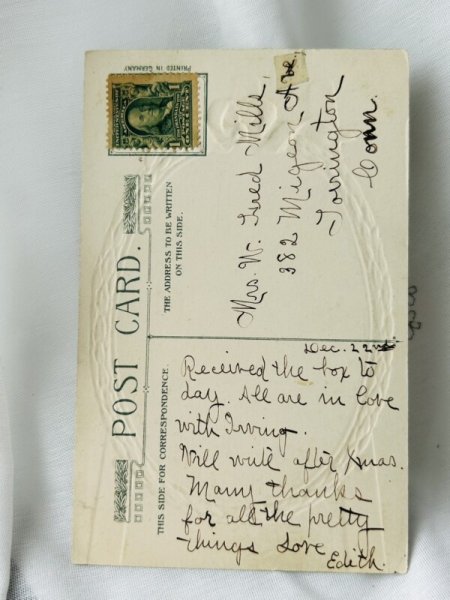 PRINTED IN GERMANY
POST CARD.
THE ADDRESS TO BE WRITTEN
ON THIS SIDE.
Mrs. W. Fred Mills,
382 Migeon Ave.
Torrington
Conn.
THIS SIDE FOR CORRESPONDENCE.
Dec. 22nd
Received the box to
day. All are in love
with Irving.
Will write after Xmas.
Many thanks
for all the pretty
things Love
Edith.